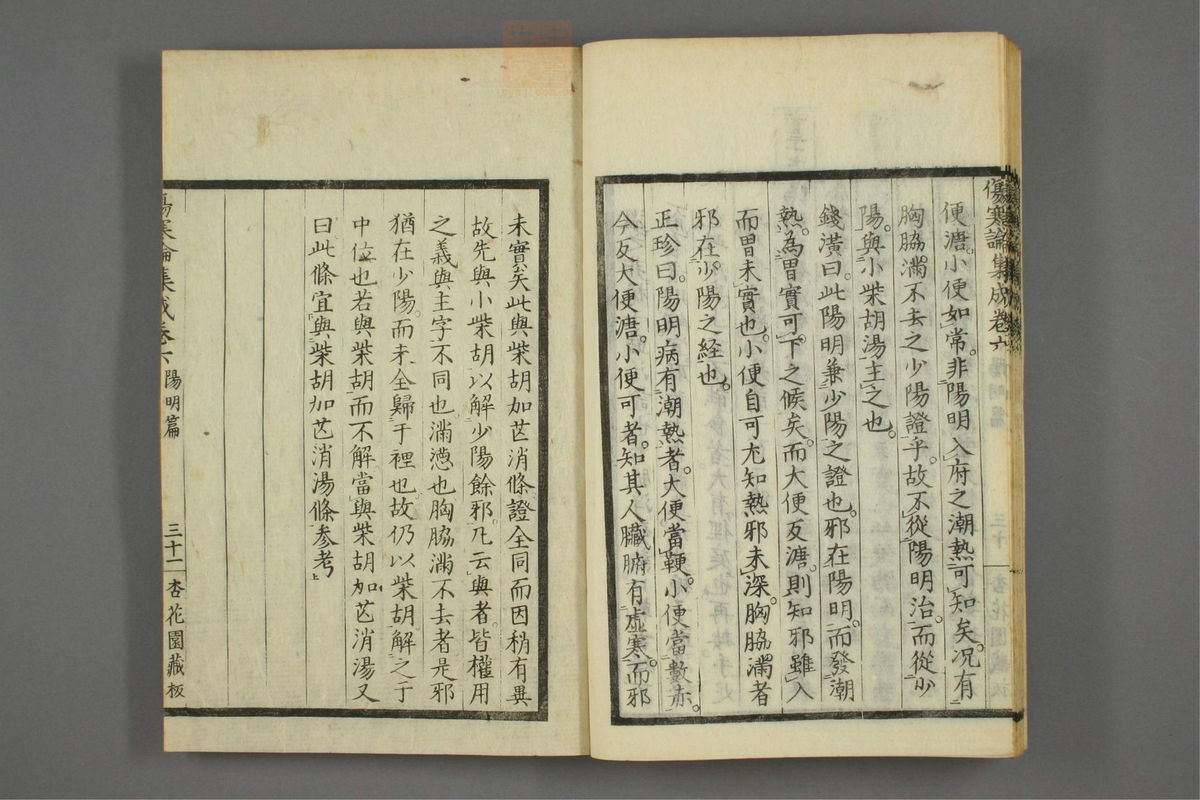 傷寒論集成卷六
便溏。小便如常。非陽明入府之潮熱可知矣。况有
胸脇滿不去之少陽證乎。故不從陽明治。而從少
陽。與小柴胡湯主之也。
錢潢曰。此陽明兼少陽之證也。邪在陽明。而發潮
熱。為胃實可下之候矣。而大便反溏。則知邪雖入
而胃未實也。小便自可。尤知熱邪未深。胸脇滿者
邪在少陽之経也。
正珍曰。陽明病有潮熱者。大便當鞕。小便當數赤。
今反大便溏。小便可者。知其人臟腑有虛寒。而邪
未實矣此與柴胡加芒消條證全同而因稍有異
故先與小柴胡以解少陽餘邪。凡云與者。皆權用
之義與主字不同也。滿懣也胸脇滿不去者是邪
猶在少陽。而未全歸于裡也。故仍以柴胡解之于
中位也若與柴胡而不解當與柴胡加芒消湯又
曰此條宜與柴胡加芒消湯條參考
傷寒論集成卷六
陽明篇
三十一
杏花園藏板